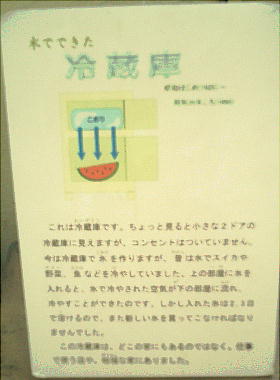 氷でできた
冷蔵庫
こおり
これは冷蔵庫です。ちょっと見ると小さな2ドアの
冷蔵庫に見えますが、コンセントはついていません。
今は冷蔵庫で氷を作りますが、昔は氷でスイカや
野菜、魚などを冷やしていました。上の部屋に氷を
入れると、氷で冷やされた空気が下の部屋に流れ、
冷やすことができたのです。しかし入れた氷は2、3日
で溶けるので、また新しい氷を買ってこなければなり
ませんでした。
この冷蔵庫は、どこの家にもあるのではなく、仕事
で使う店や、
家にありました。